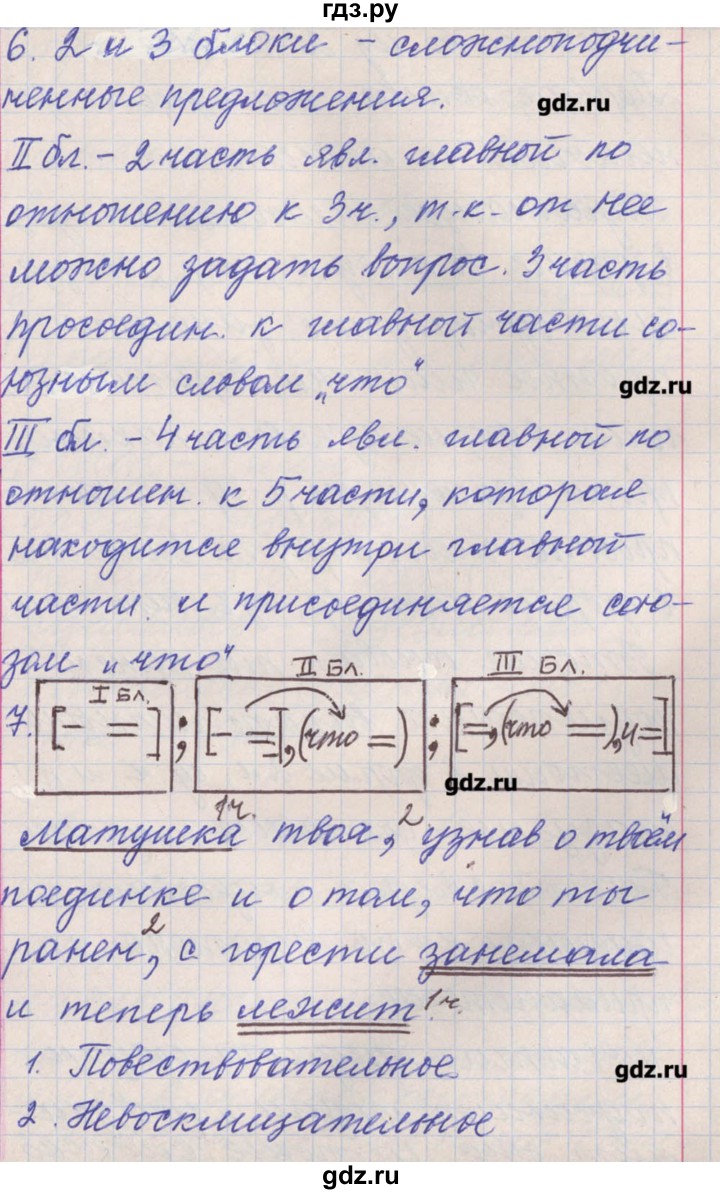 гдз.ру
6. 2 и 3 блоки - сложноподчи-
ненные предложения.
gdz.ru
II бл. - 2 часть явл. главной по
отношению к 3ч., т.к. от нее
можно задать вопрос. 3 часть
присоедин. к главной части со-
юзным словом „что"
gdz.ru
III бл. - 4 часть явл. главной по
отношен. к 5 части, которая
находится внутри главной
части и присоединяется сою-
зом „что"
I БЛ. II БЛ. III БЛ.
7. [- =] ; [- =], (что =) : [=, (что =), и =]
gdz.ru
1ч. 2
Матушка твоя, узнав о твоём
поединке и о том, что ты
2
ранен, с горести занемогла
и теперь лежит. 1ч.
1. Повествовательное
gdz.ru
2. Невосклицательное
gdz.ru